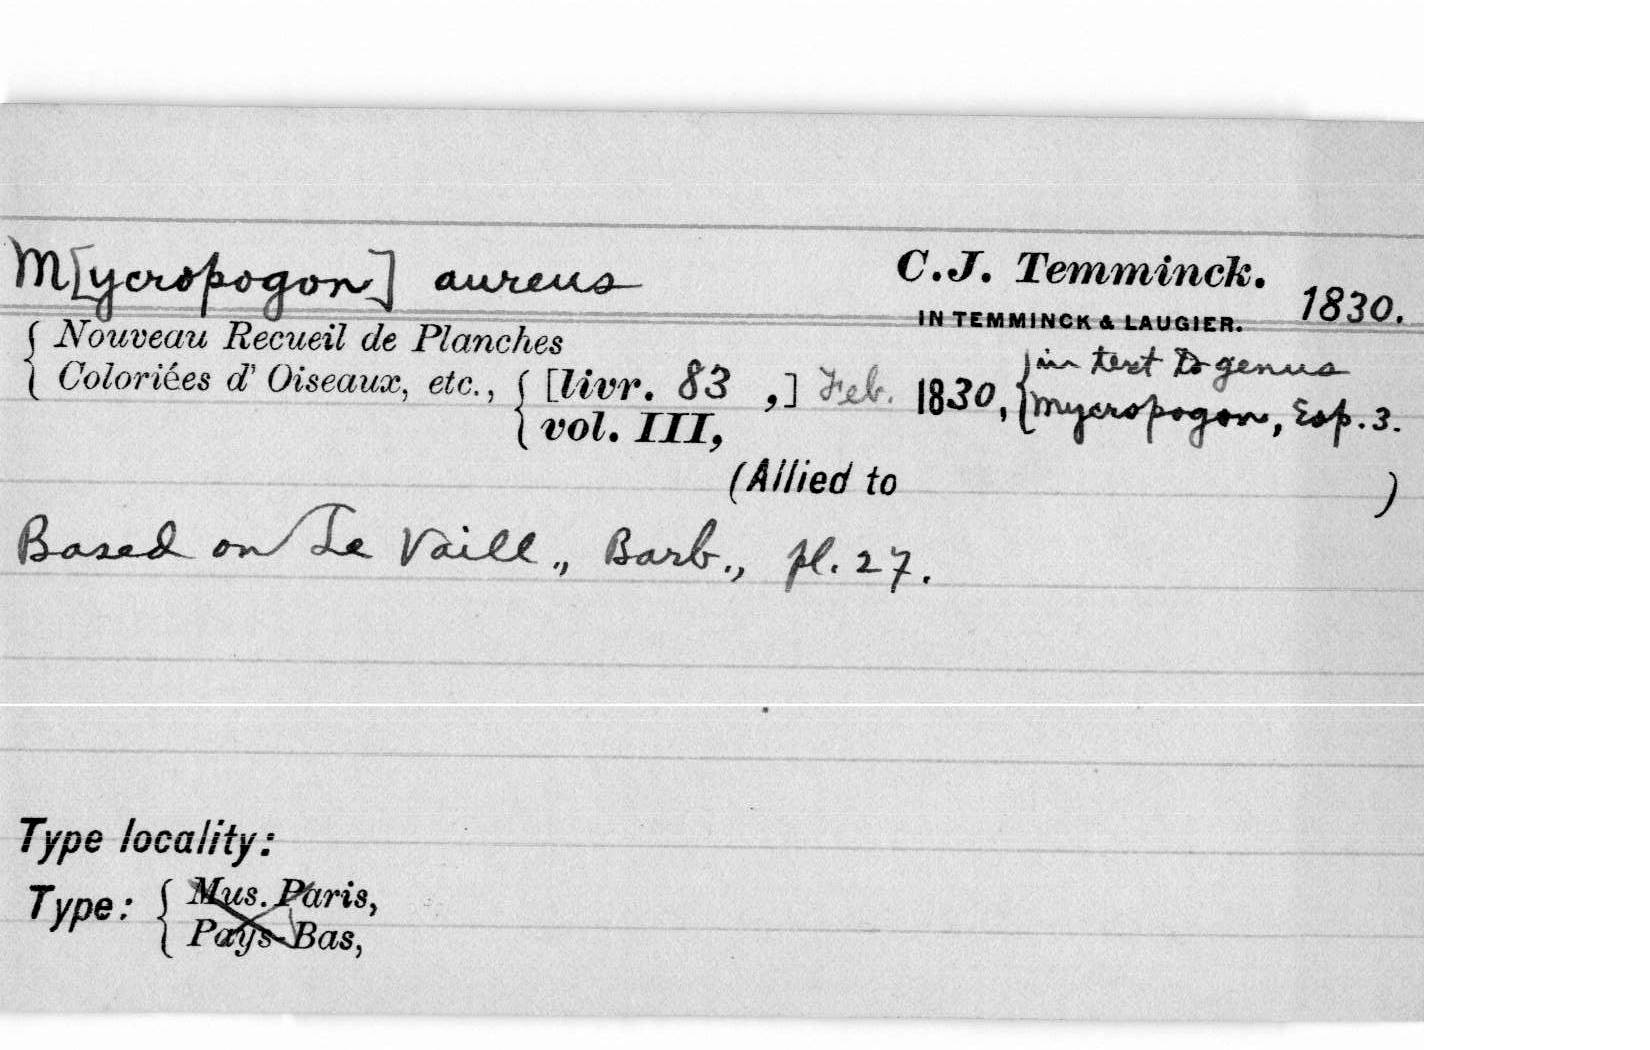 M[ycropogon] aureus C.J. Temminck. 1830.
IN TEMMINCK & LAUGIER.
{ Nouveau Recueil de Planches
Coloriées d' Oiseaux, etc., { [livr. 83 ,] Feb. 1830, { in text to genus
vol. III, Mycropogon, Esp. 3.
(Allied to )
Based on Le Vaill., Barb., pl. 27.
Type locality:
Type: { Mus. Paris,
Pays-Bas,